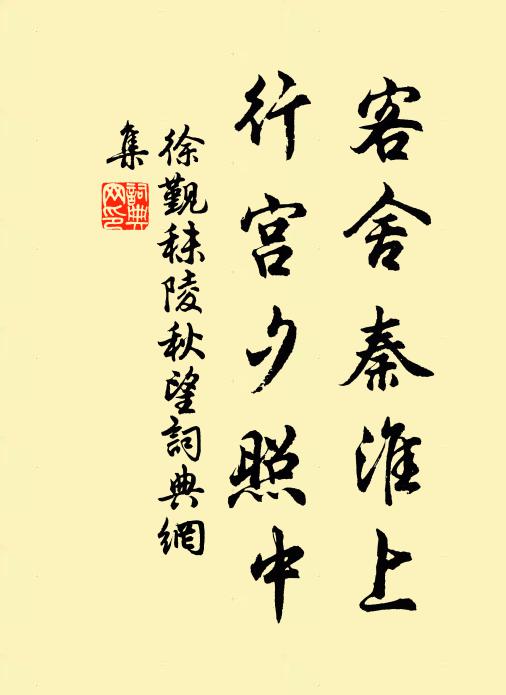 客舍秦淮上
行宫夕照中
徐觐秣陵秋望詞典網
集
詞典網印